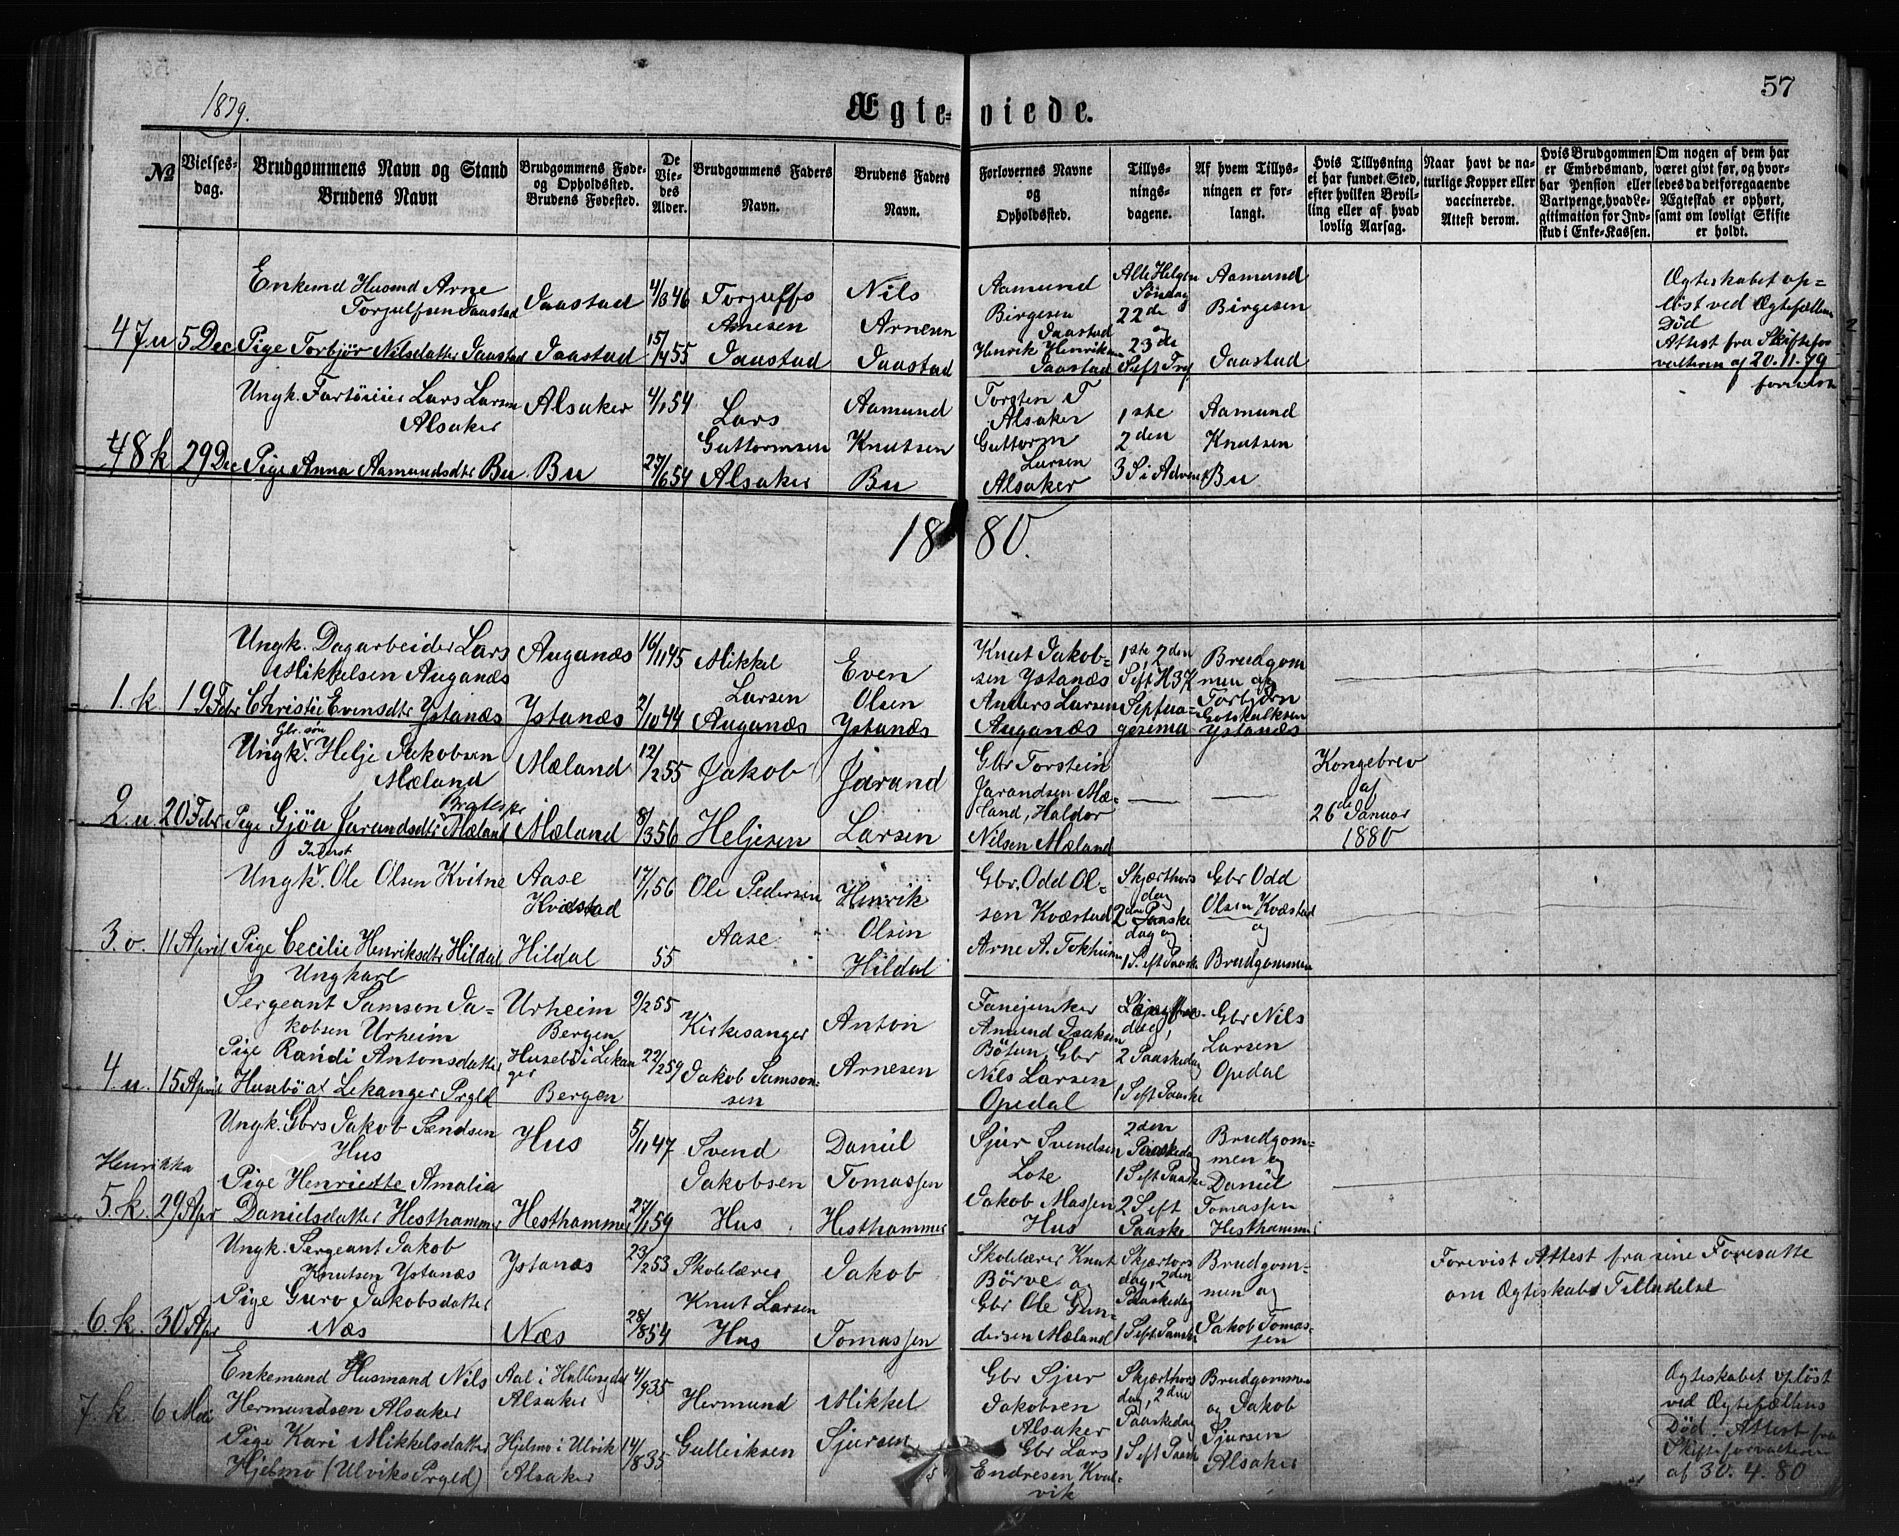 57
1879.
Ægteviede.
№
Vielses-
dag.
Brudgommens Navn og Stand
Brudens Navn
Brudgommens Føde-
og Opholdssted.
Brudens Fødested.
De
Vie-
des
Alder.
Brudgommens Faders
Navn.
Brudens Faders
Navn.
Forlovernes Navne
og
Opholdssted.
Tillys-
nings-
dagene.
Af hvem Tillys-
ningen er for-
langt.
Hvis Tillysning
ei har fundet Sted,
efter hvilken Bevil-
ling eller af hvad
lovlig Aarsag.
Naar havt de na-
turlige Kopper eller
vaccinerede.
Attest derom.
Hvis Brudgommen
er Embedsmand,
har Pension eller
Vartpenge, hvad Le-
gitimation for Ind-
skud i Enke-Kassen.
Om nogen af dem har
været givt før, og hvor-
ledes da det foregaaende
Ægteskab er ophørt,
samt om lovligt Skifte
er holdt.
47 u 5 Dec
Enkemd Husmd Arne
Torjulfsen Jaastad
Pige Torbjør Nilsdatter Jaastad
Jaastad
Jaastad
4/3 46
15/4 55
Torjulfs
Arnesen
Jaastad
Nils
Arnesen
Jaastad
Aamund
Birgesen
Jaastad
Henrik Henriksen
Jaastad
Alle Helgen
Søndag
22de
og
23de
S eft Tref
Aamund
Birgesen
Jaastad
Ægteskabet op-
løst ved Ægtefællens
Død
Attest fra Skiftefor
valteren af 20.11.79
forevist
48 k 29 Dec
Ungk. Fartøieier Lars Larsen
Alsaker
Pige Anna Aamundsdtr Bu
Alsaker
Bu
4/1 54
27/6 54
Lars
Guttormsen
Alsaker
Aamund
Knutsen
Bu
Torsten T
Alsaker
Guttorm
Larsen
Alsaker
1ste
2den
3 S i Advent
Aamund
Knutsen
Bu
1880.
1. k 19 Febr
Ungk. Dagarbeider Lars
Mikkelsen Auganæs
Christie Evensdtr Ystanæs
Auganæs
Ystanæs
16/11 45
2/10 44
Mikkel
Larsen
Auganæs
Even
Olsen
Ystanæs
Knut Jakob-
sen Ystanæs
Anders Larsen
Auganæs
1ste, 2den
S eft H3K
Septua-
gesima
Brudgom
men og
Torbjørn
Gotskalksen
Ystanæs
2. u. 20 Febr
Gbr. søn
Ungk. Helje Jakobsen
Mæland
Pige Gjøa Jarandsdtr Mæland
Mæland
Mæland
12/2 55
8/3 56
Jakob
Heljesen
Jarand
Larsen
Gbr Torstein
Jarandsen Mæ-
land, Haldor
Nilsen Mæland
Kongebrev
af
26de Januar
1880
3. o. 11 April
Inderst
Ungk. Ole Olsen Kvitne
Pige Cecilie Henriksdtr Hildal
Aase
Kvæstad
Hildal
17/1 56
55
Ole Pedersen
Aase
Henrik
Olsen
Hildal
Gbr. Odd Ol-
sen Kvæstad
Arne A. Tokheim
Skjærthors
dag
2den Paaske
dag og
1 S. eft Paaske
Gbr Odd
Olsen Kvæstad
og
Brudgommen
4 u. 15 April
Ungkarl
Sergeant Samson Ja-
kobsen Urheim
Pige Randi Antonsdatter
Husebö af Lekanger Prgld
Urheim
Bergen
Husebö i Lekan
ger
Bergen
9/2 55
22/2 59
Kirkesanger
Jakob Samson-
sen
Anton
Arnesen
Fanejunker
Amund Isaksen
Bötun, Gbr
Nils Larsen
Opedal
dag,
2 Paaskedag
1 S eft Paaske
Gbr Nils
Larsen
Opedal
Henrikka
5. k. 29 Apr
Ungk. Gbrs Jakob Svendsen
Hus
Pige Henriette Amalia
Danielsdatter Hesthammer
Hus
Hesthammer
5/11 47
27/1 59
Svend
Jakobsen
Hus
Daniel
Tomassen
Hesthammer
Sjur Svendsen
Lote
Jakob Massen
Hus
2den
Paaskedag
1 S eft Paaske
2 S eft
Paaske
Brudgom-
men og
Daniel
Tomassen
Hesthammer
6. k. 30 Apr
Ungk. Sergeant Jakob
Knutsen Ystanæs
Pige Guro Jakobsdatter
Næs
Ystanæs
Næs
23/2 53
28/8 54
Skolelærer
Knut Larsen
Hus
Jakob
Tomassen
Skolelærer Knut
Börve og
Gbr Ole Gun-
dersen Mæland
Skjærtors
dag, 2den
Paaskedag
1 S eft Paaske
Brudgom-
men og
Jakob Tomas-
sen
Forevist Attest fra sine Foresatte
om Ægteskabs Tilladelse
7. k. 6 Mai
Enkemand Husmand Nils
Hermundsen Alsaker
Pige Kari Mikkelsdatter
Hjelmo (Ulviks Prgld)
Aal i Hallingdal
Alsaker
Hjelmo i Ulvik
Alsaker
4/9 35
14/8 35
Hermund
Gulleiksen
Mikkel
Sjursen
Gbr Sjur
Jakobsen
Alsaker
Gbr Lars
Endresen Kval-
vik
Skjærthors
dag, 2den
Paaskedag
1 S eft Paask
Brudgommen
og Jakob
Sjursen
Alsaker
Ægteskabet opløst
ved Ægtefælles
Død. Attest fra
Skifteforvalteren
af 30. 4. 80